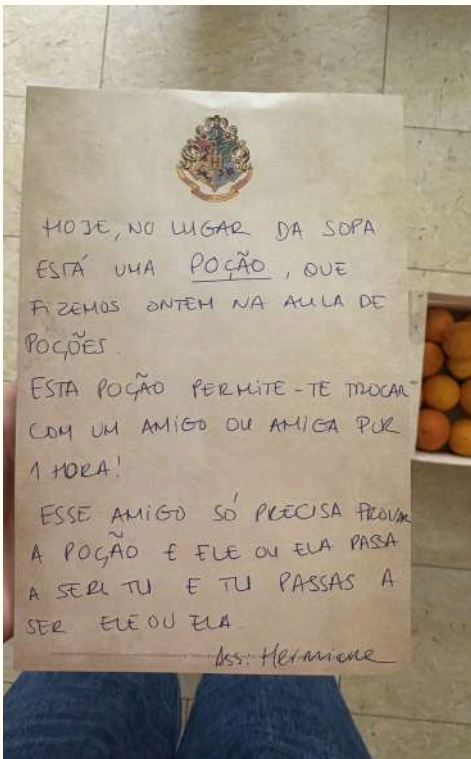 HOJE, NO LUGAR DA SOPA
ESTÁ UMA POÇÃO, QUE
FIZEMOS ONTEM NA AULA DE
POÇÕES
ESTA POÇÃO PERMITE-TE TROCAR
COM UM AMIGO OU AMIGA POR
1 HORA!
ESSE AMIGO SÓ PRECISA PROVAR
A POÇÃO E ELE OU ELA PASSA
A SER TU E TU PASSAS A
SER ELE OU ELA.
Ass: Hermione